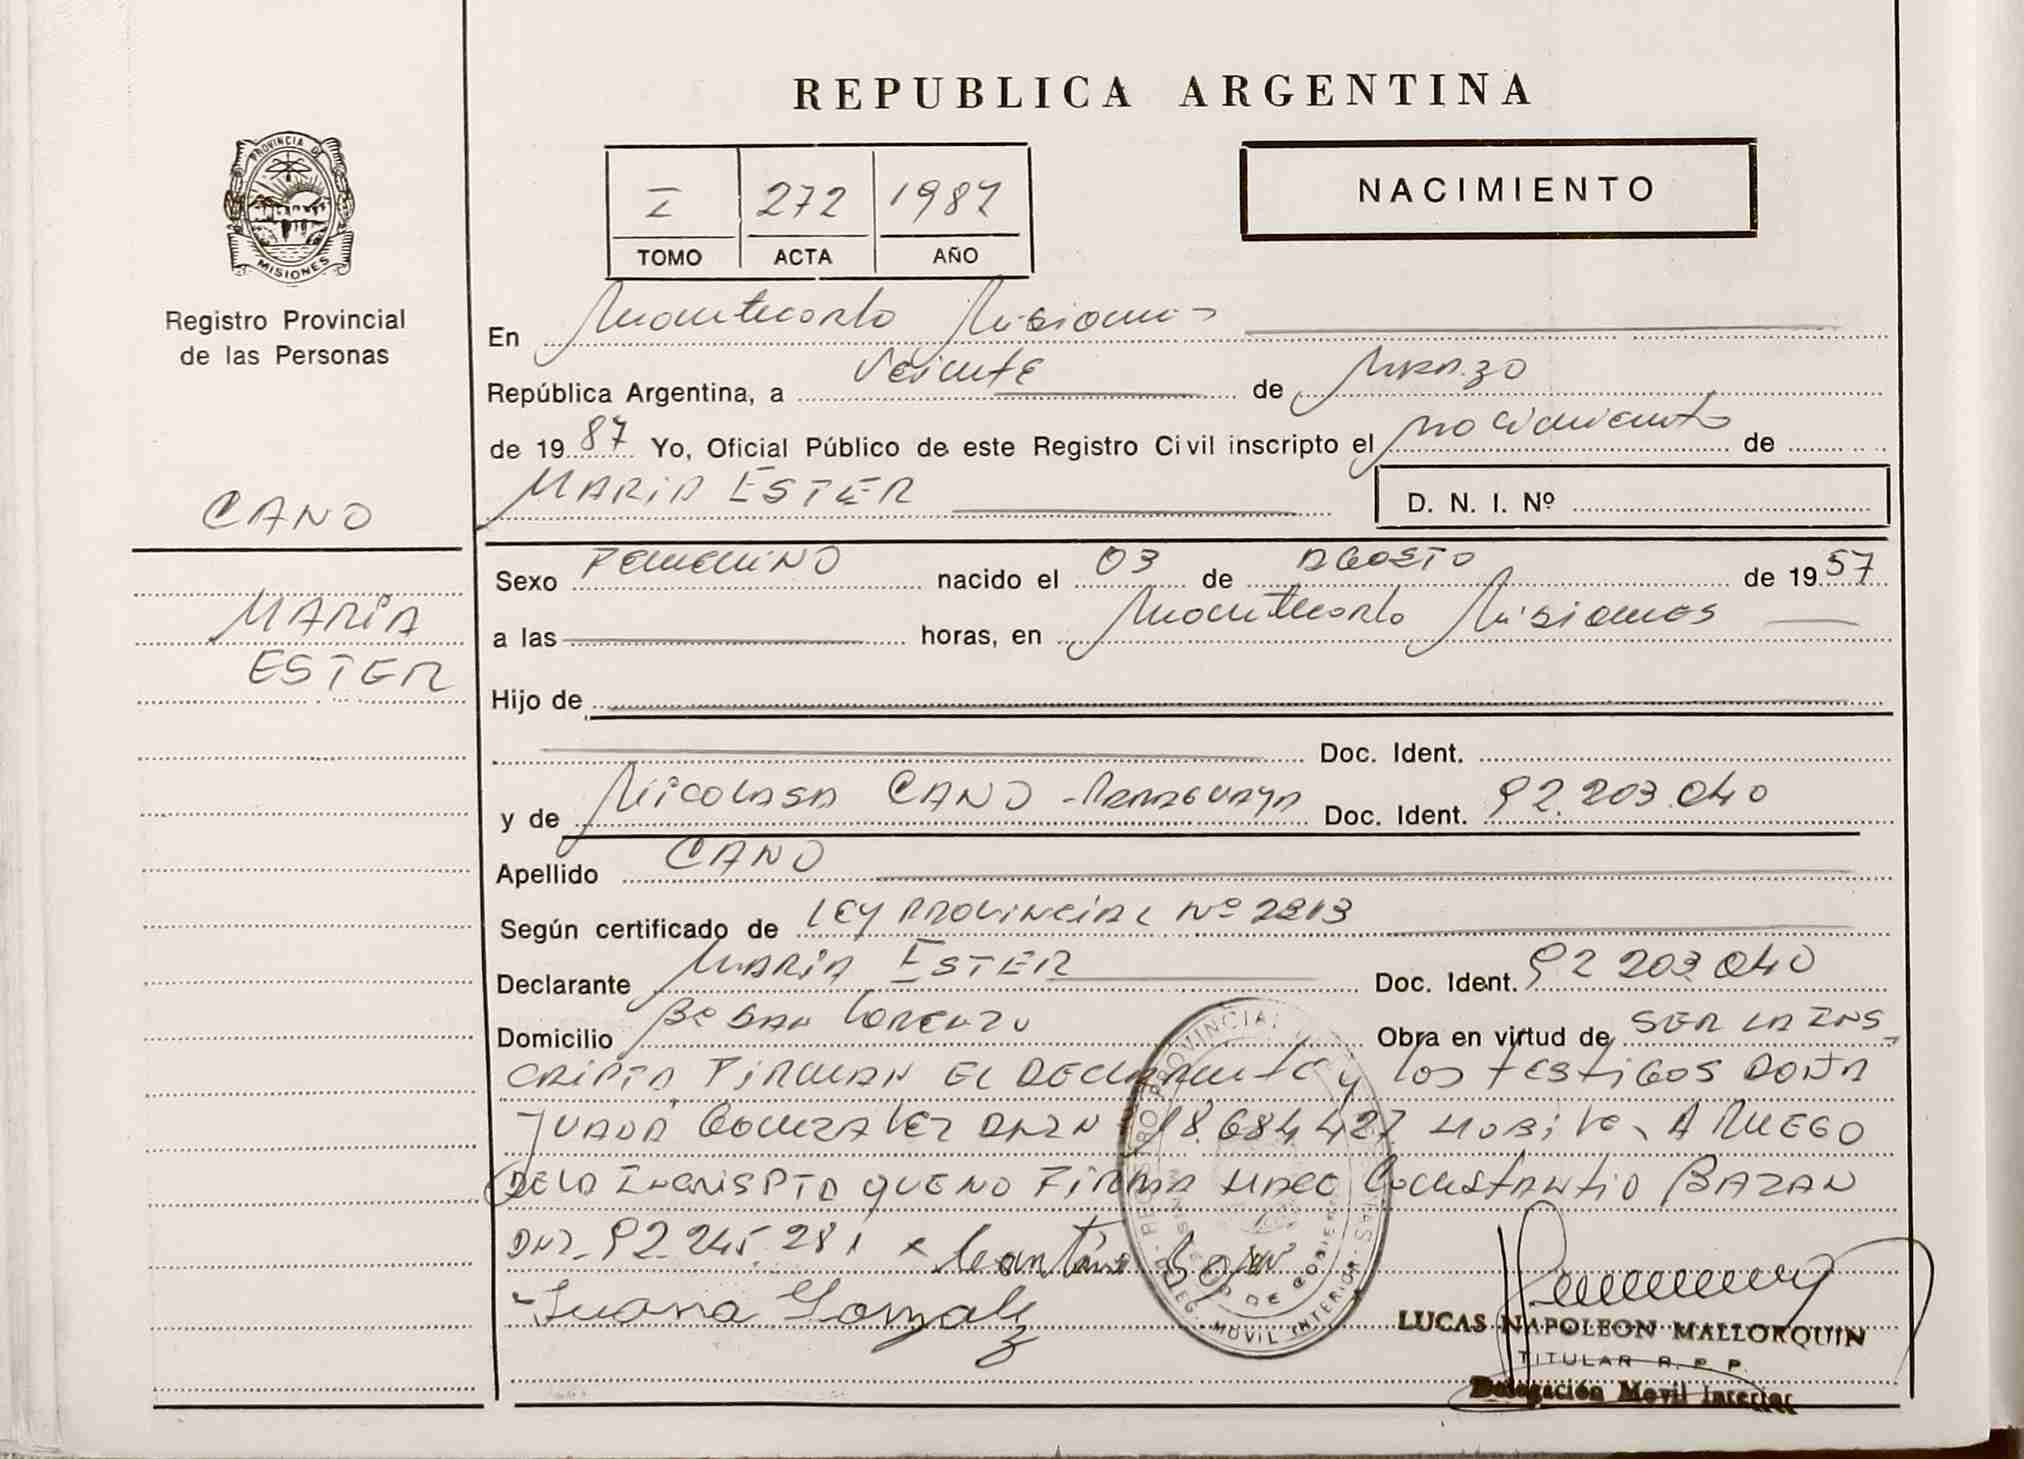 REPUBLICA ARGENTINA
PROVINCIA DE
MISIONES
Registro Provincial
de las Personas
I 272 1987
TOMO ACTA AÑO
NACIMIENTO
En Montecarlo Misiones
República Argentina, a Veinte de Marzo
de 1987 Yo, Oficial Público de este Registro Civil inscripto el nacimiento de
MARIA ESTER D. N. I. Nº
CANO
MARIA
ESTER
Sexo Femenino nacido el 03 de AGOSTO de 1957
a las horas, en Montecarlo Misiones
Hijo de
Doc. Ident.
y de Nicolasa CANO - Paraguaya Doc. Ident. 92.203.040
Apellido CANO
Según certificado de LEY PROVINCIAL Nº 2213
Declarante MARIA ESTER Doc. Ident. 92 203 040
Domicilio Bº San Lorenzo Obra en virtud de SER LA INS-
CRIPTA FIRMAN EL DECLARANTE y los testigos DOÑA
JUANA Gonzalez DNI Nº 18.684.427 A RUEGO
DE LA INCRISPTA QUE NO FIRMA HACE Constantio BAZAN
DNI- 92.245.281 x
Juana Gonzalez
REGISTRO PROVINCIAL DE LAS PERSONAS
MINISTERIO DE GOBIERNO
DELEG. MOVIL INTERIOR
LUCAS NAPOLEON MALLORQUIN
TITULAR R. P. P.
Delegación Movil Interior